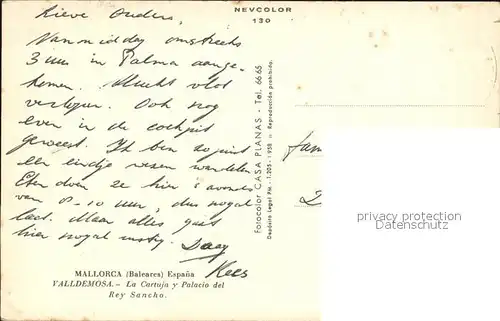 NEVCOLOR
130
Lieve Ouders,
Vanmiddag omstreeks
3 uur in Palma aange-
komen. Vlucht vlot
verlopen. Ook nog
even in de cockpit
geweest. Ik ben zojuist
een eindje wezen wandelen
Eten doen ze hier 's avonds
van 8-10 uur, dus nogal
laat. Maar alles gaat
hier nogal rustig. Daag
Kees
MALLORCA (Baleares) España
VALLDEMOSA.- La Cartuja y Palacio del
Rey Sancho.
Fotocolor CASA PLANAS - Tel. 6665
Depósito Legal PM.-1.205.-1958 Reproducción prohibida.
Fam
privacy protection
Persönlichkeitsschutz